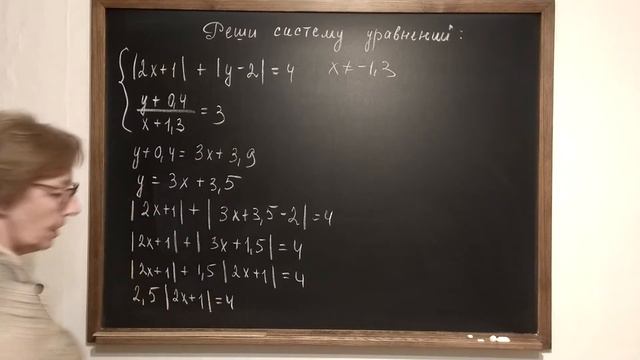 Реши систему уравнений:
|2x+1| + |y-2| = 4 x ≠ -1,3
y+0,4
x+1,3
= 3
y+0,4 = 3x+3,9
y = 3x+3,5
|2x+1| + |3x+3,5-2| = 4
|2x+1| + |3x+1,5| = 4
|2x+1| + 1,5|2x+1| = 4
2,5|2x+1| = 4